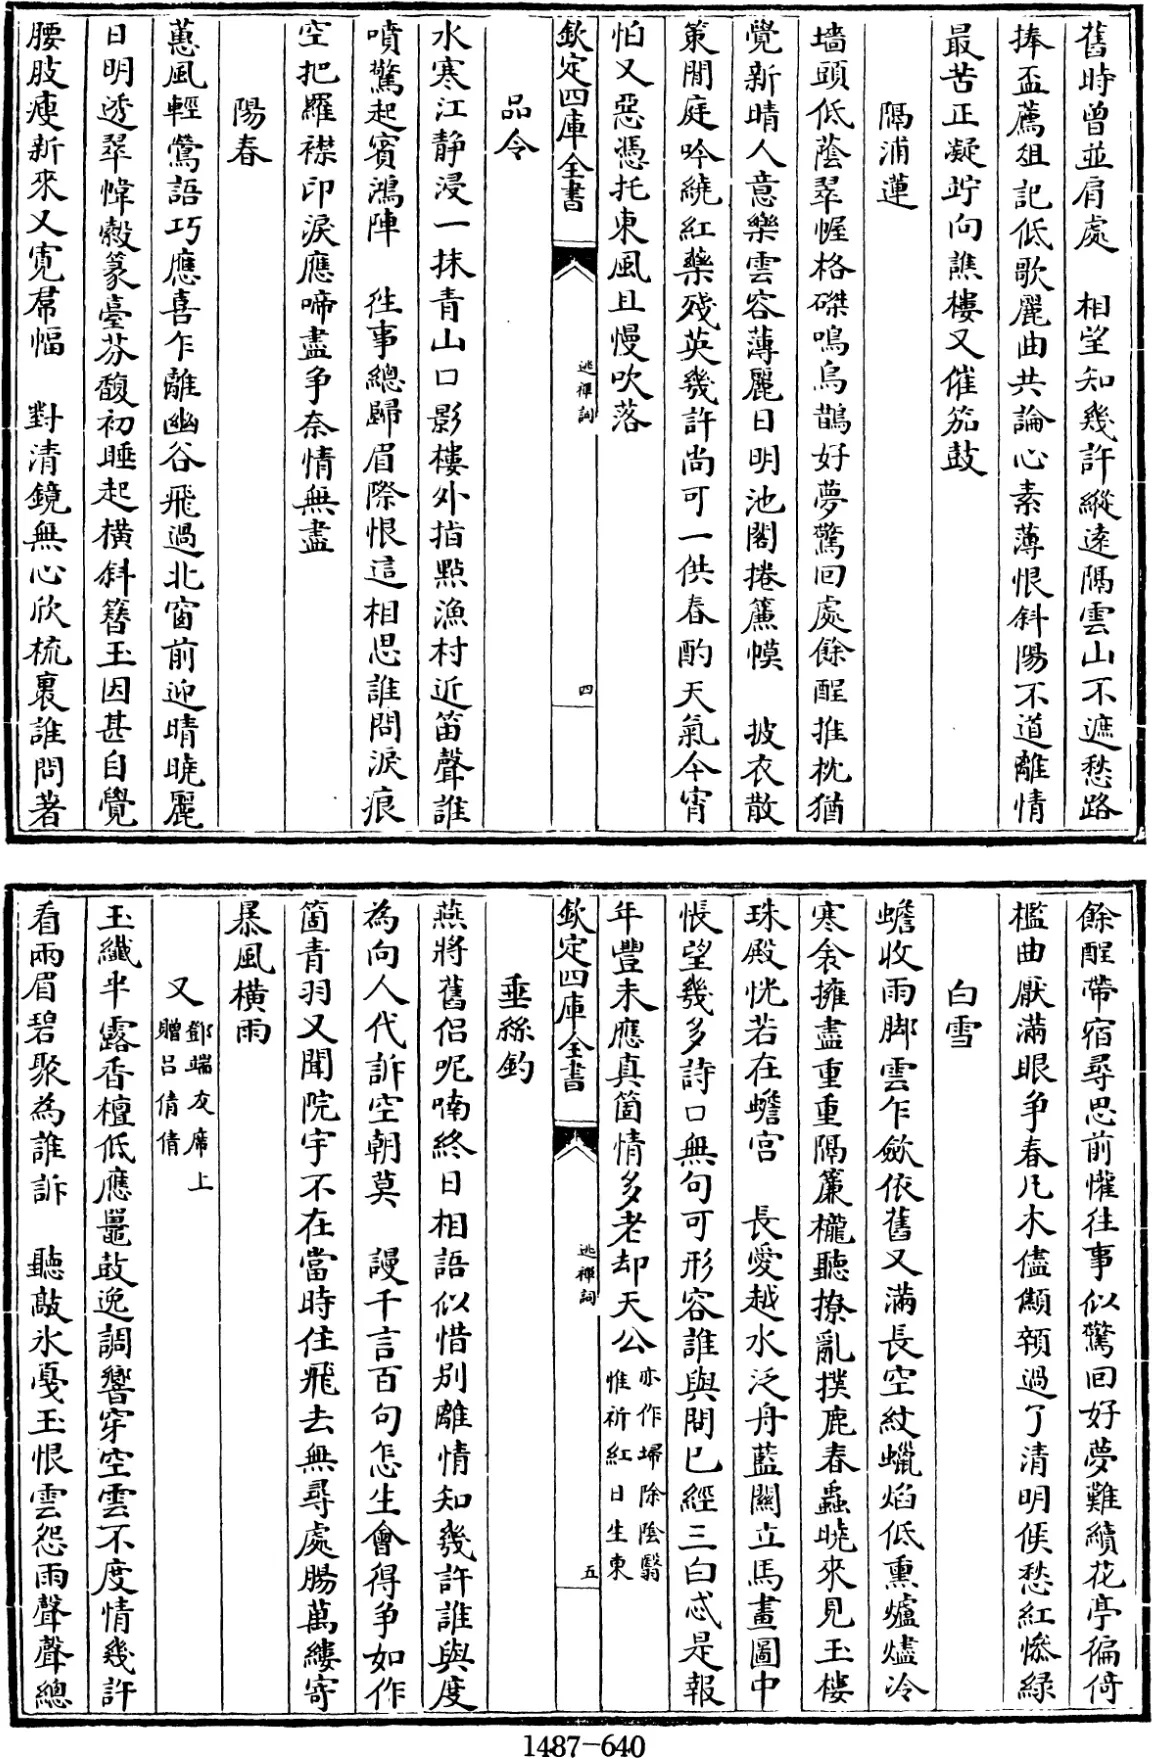 舊時曾並肩處　相望知幾許縱遠隔雲山不遮愁路
捧盃薦俎記低歌麗曲共論心素薄恨斜陽不道離情
最苦正凝竚向譙樓又催笳鼓
隔浦蓮
墻頭低蔭翠幄格磔鳴烏鵲好夢驚回處餘酲推枕猶
覺新晴人意樂雲容薄麗日明池閣捲簾幙　披衣散
策閒庭吟繞紅藥殘英幾許尚可一供春酌天氣今宵
怕又惡憑托東風且慢吹落
欽定四庫全書
逃禪詞
四
品令
水寒江静浸一抹青山口影樓外指點漁村近笛聲誰
噴驚起賓鴻陣　徃事總歸眉際恨這相思誰問淚痕
空把羅襟印淚應啼盡争奈情無盡
陽春
蕙風輕鶯語巧應喜乍離幽谷飛過北窗前迎晴曉麗
日明透翠幃縠篆臺芬馥初睡起橫斜簪玉因甚自覺
腰肢瘦新來又寛帬幅　對清鏡無心欣梳裹誰問著
餘酲帶宿尋思前懽往事似驚回好夢難續花亭徧倚
檻曲厭滿眼争春凡木儘顦顇過了清明候愁紅慘緑
白雪
蟾收雨脚雲乍斂依舊又滿長空紋蠟焰低熏爐燼冷
寒衾擁盡重重隔簾櫳聽撩亂撲鹿春蟲曉來見玉樓
珠殿恍若在蟾宫　長愛越水泛舟藍關立馬畫圖中
悵望幾多詩口無句可形容誰與問已經三白忒是報
年豐未應真箇情多老却天公亦作埽除陰翳惟祈紅日生東
欽定四庫全書
逃禪詞
五
垂絲釣
燕將舊侣呢喃終日相語似惜别離情知幾許誰與度
為向人代訴空朝莫　謾千言百句怎生會得争如作
箇青羽又聞院宇不在當時住飛去無尋處腸萬縷寄
暴風橫雨
又鄧端友席上贈吕倩倩
玉纖半露香檀低應鼉鼓逸調響穿空雲不度情幾許
看兩眉碧聚為誰訴　聽敲氷戞玉恨雲怨雨聲聲總
1487-640